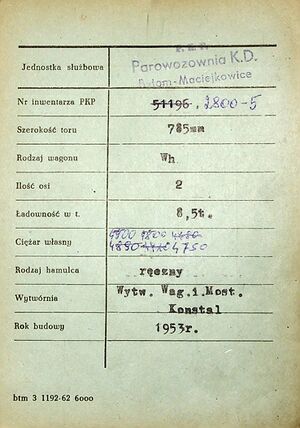 P. K. P.
Parowozownia K.D.
Bytom-Maciejkowice
Jednostka służbowa
Nr inwentarza PKP 51196. 2800-5
Szerokość toru 785mm
Rodzaj wagonu Wh
Ilość osi 2
Ładowność w t. 8,5t.
4900 4800 4680
Ciężar własny 4890 4750
Rodzaj hamulca ręczny
Wytw. Wag.i.Most.
Wytwórnia
Konstal
Rok budowy 1953r.
btm 3 1192-62 6000